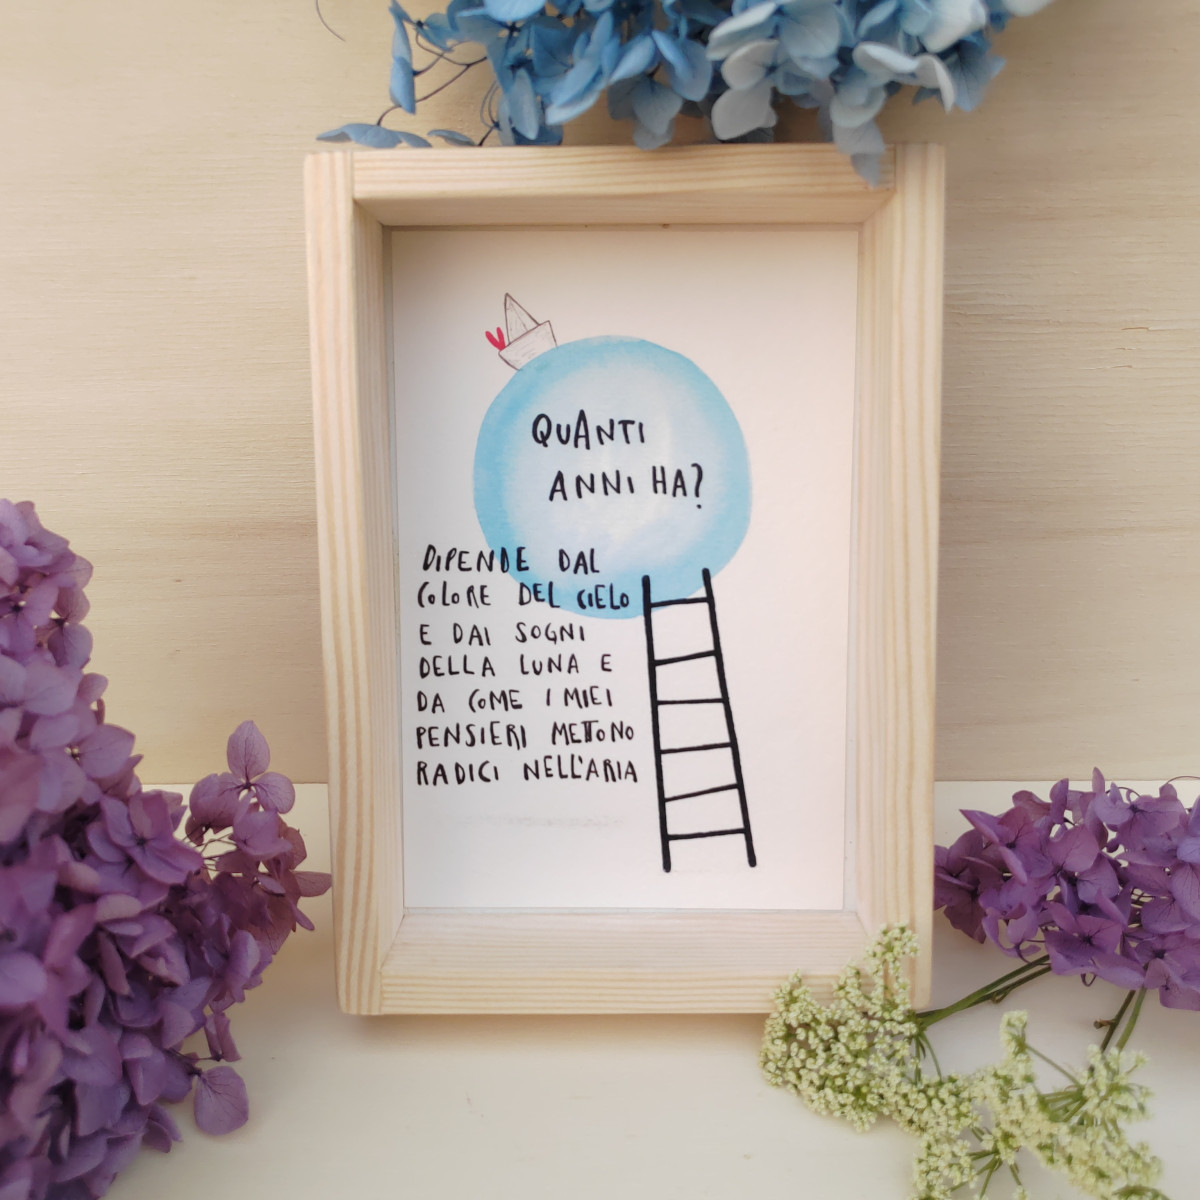 QUANTI
ANNI HA?
DIPENDE DAL
COLORE DEL CIELO
E DAI SOGNI
DELLA LUNA E
DA COME I MIEI
PENSIERI METTONO
RADICI NELL'ARIA